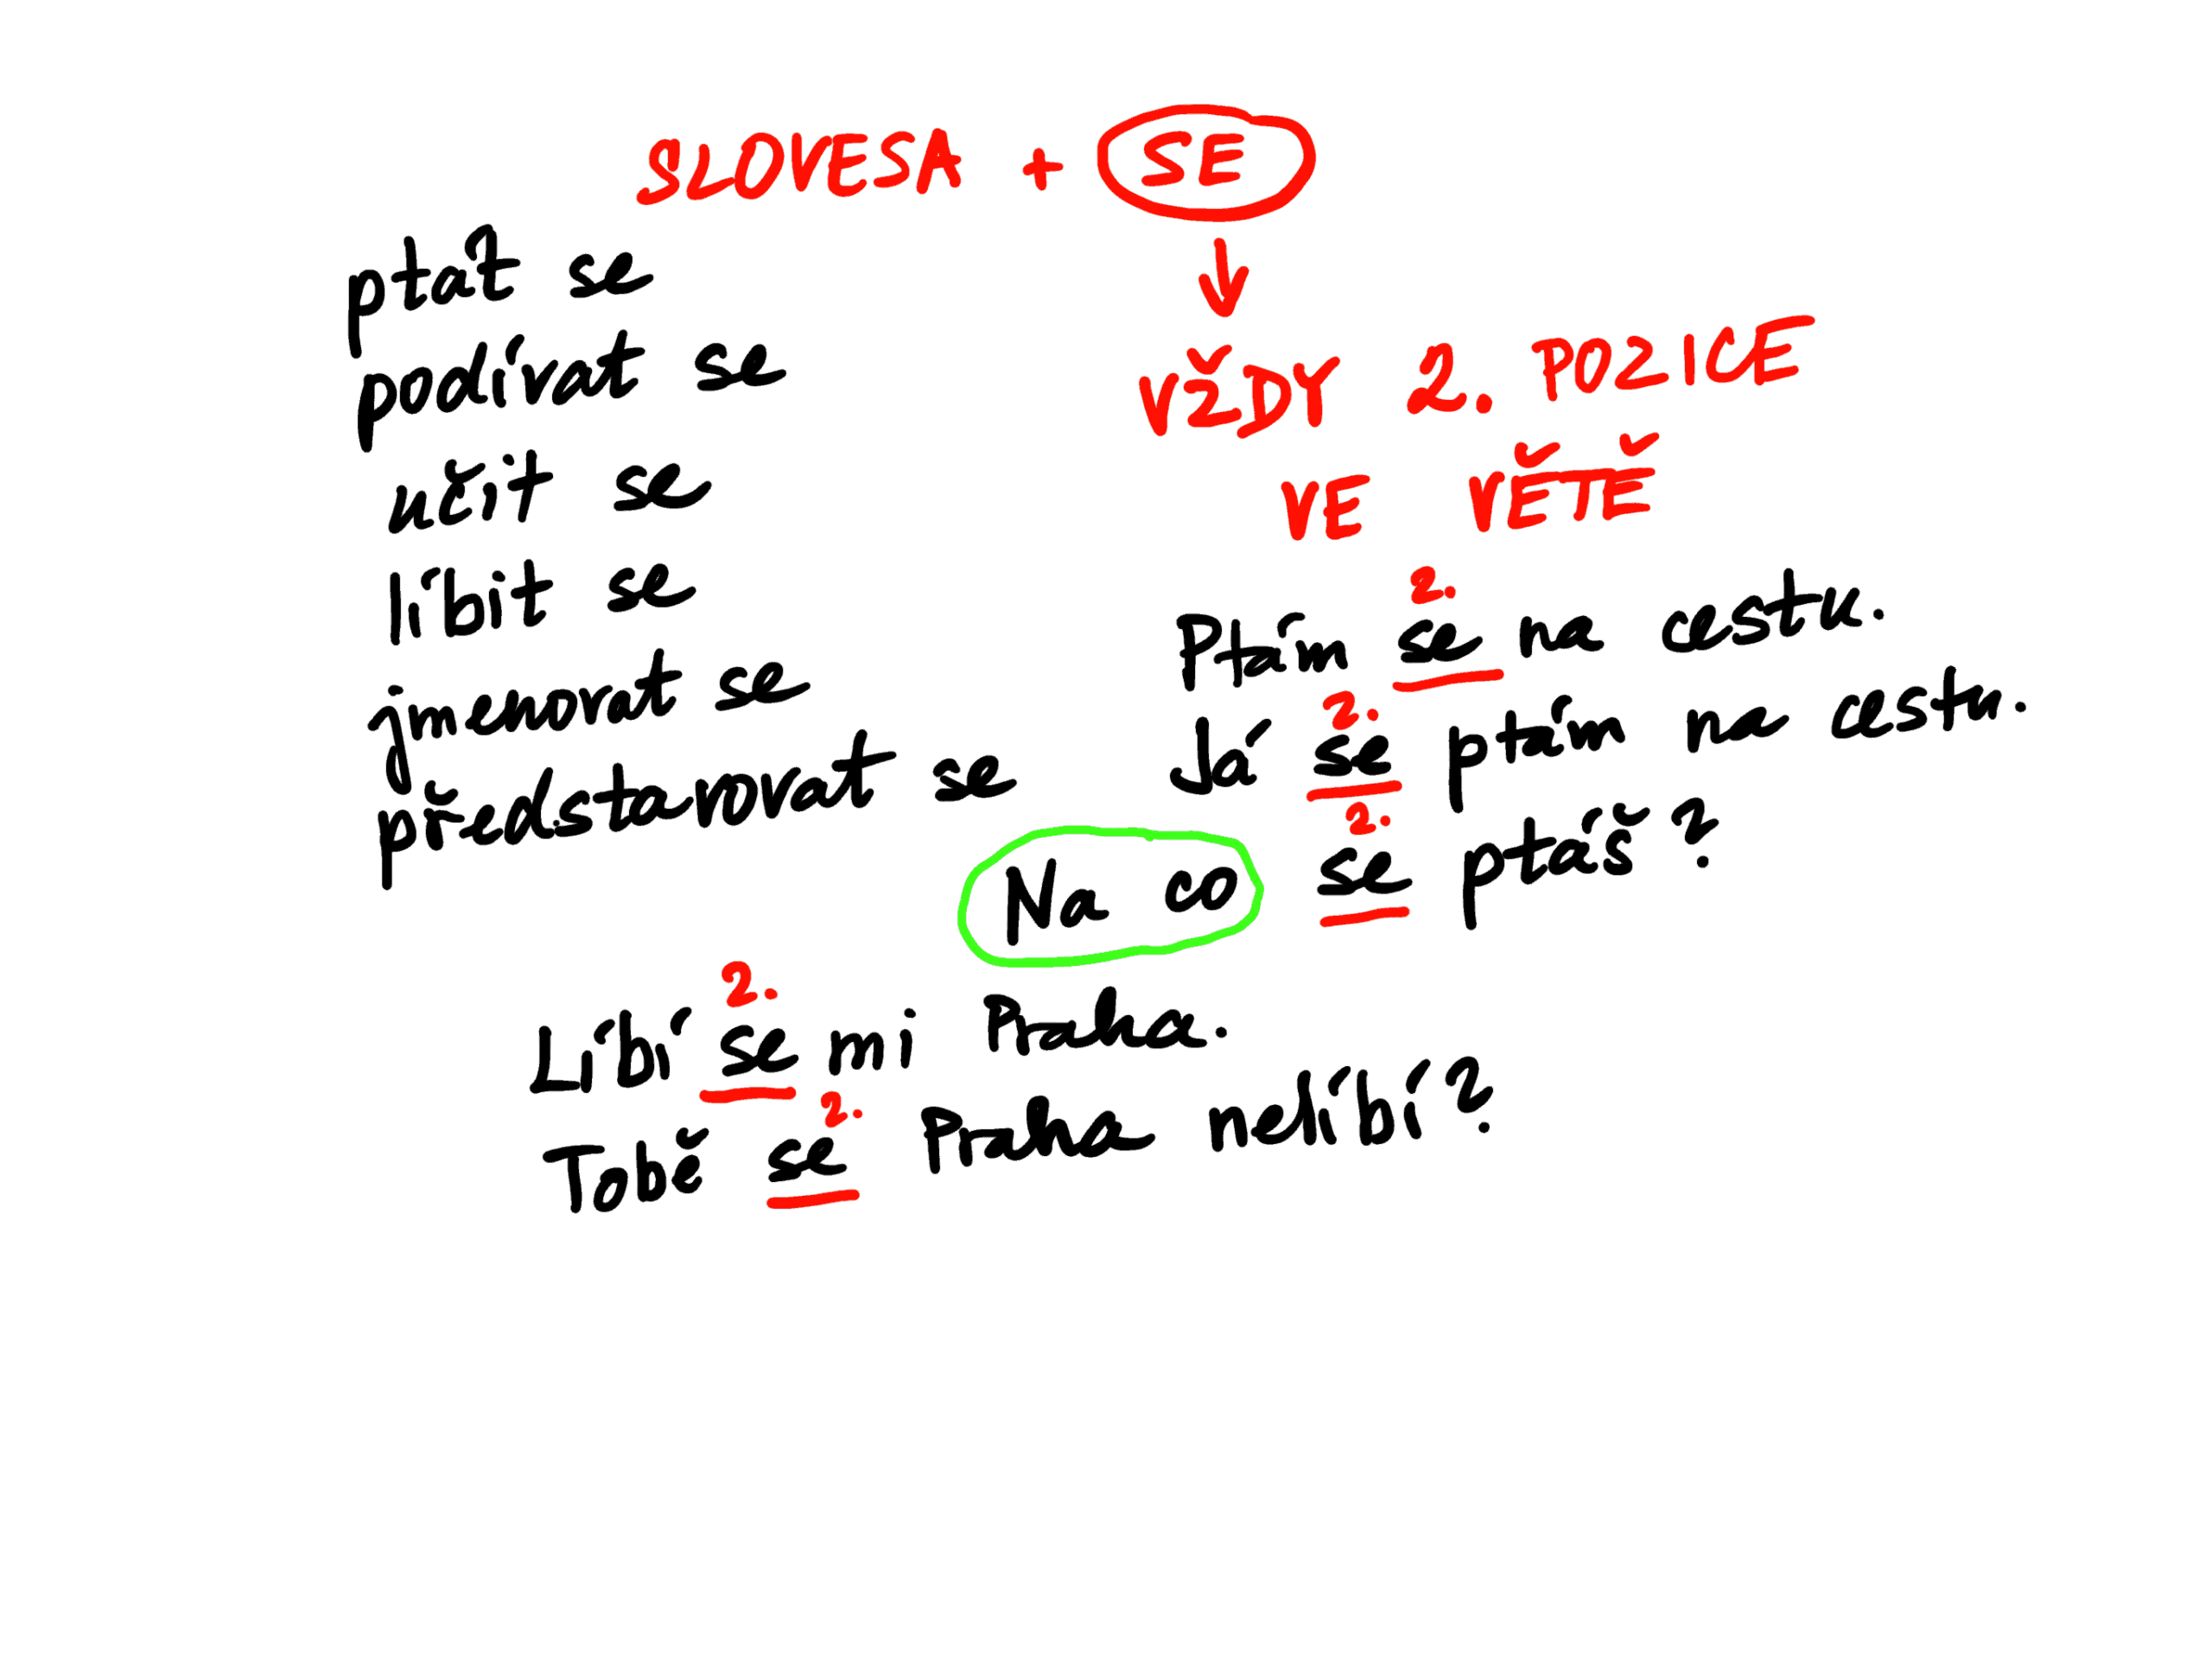 SLOVESA + SE
ptát se
podívat se
učit se
líbit se
jmenovat se
představovat se
VŽDY 2. POZICE
VE VĚTĚ
2.
Ptám se na cestu.
2.
Já se ptám na cestu.
2.
Na co se ptáš?
2.
Líbí se mi Praha.
2.
Tobě se Praha nelíbí?